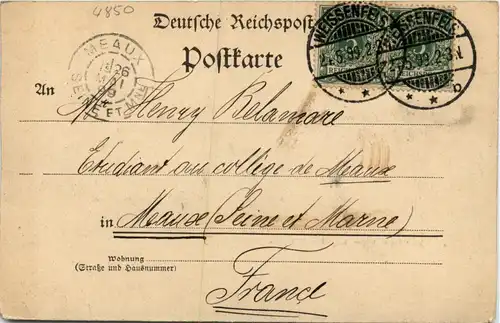 4850
Deutsche Reichspost
Postkarte
WEISSENFELS
WEISSENFELS
MEAUX
26
MAI
SEINE-ET-MNE
An M. Henry Delamare
Etudiant au collège de Meaux
in Meaux (Seine et Marne)
Wohnung
(Straße und Hausnummer)
France